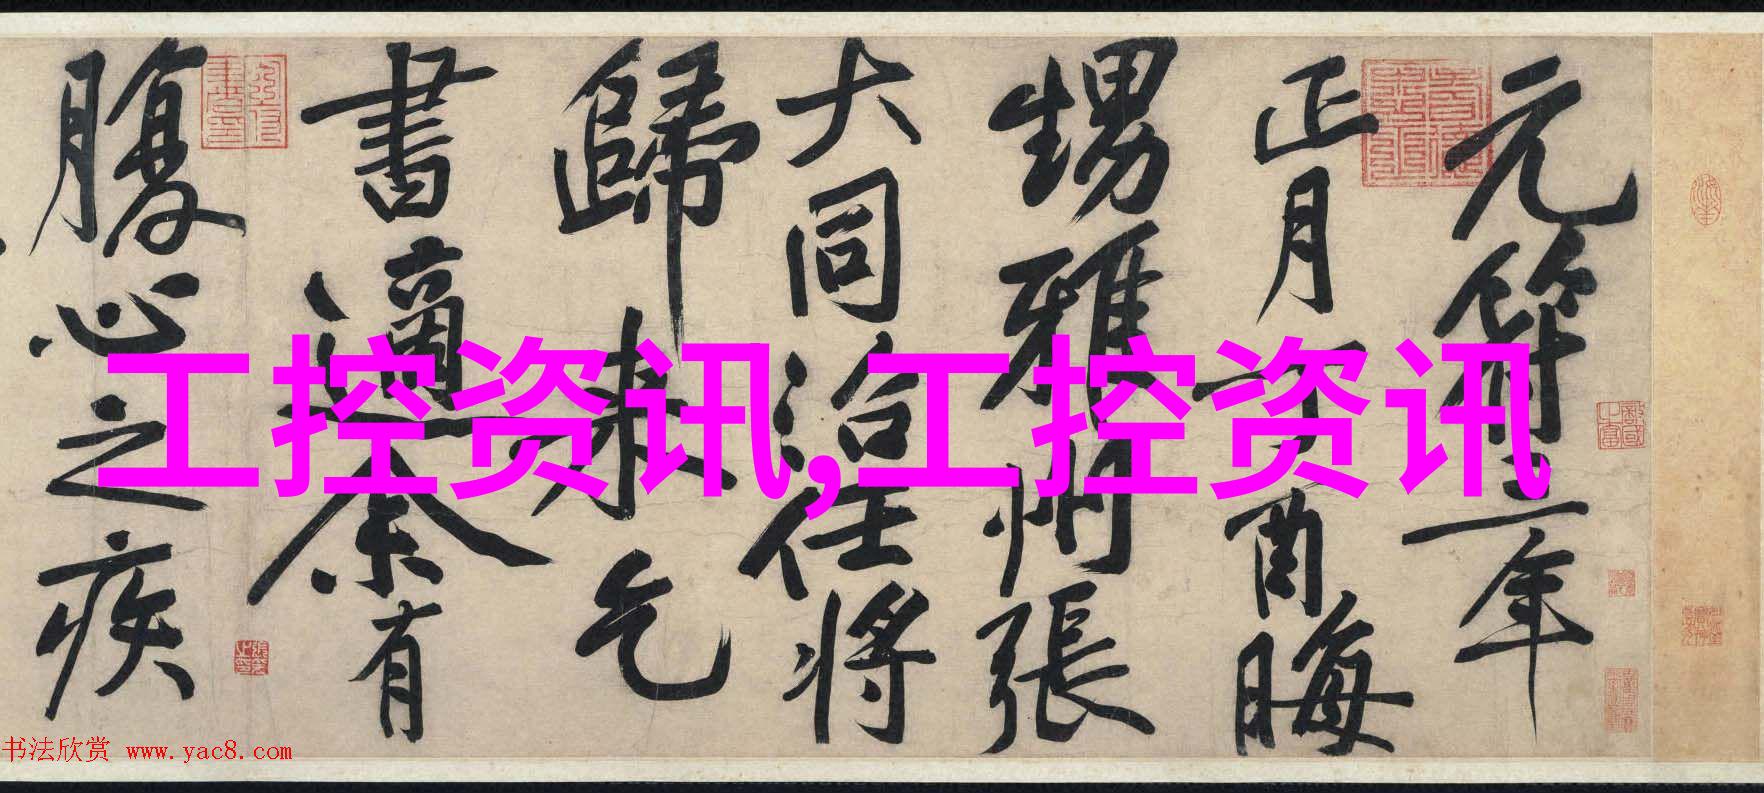 元符三年
正月丁酉晦
甥雅州張
大同治任將
歸來乞
書適余有
腹心之疾
工控资讯,工控资讯
书法欣赏 www.yac8.com